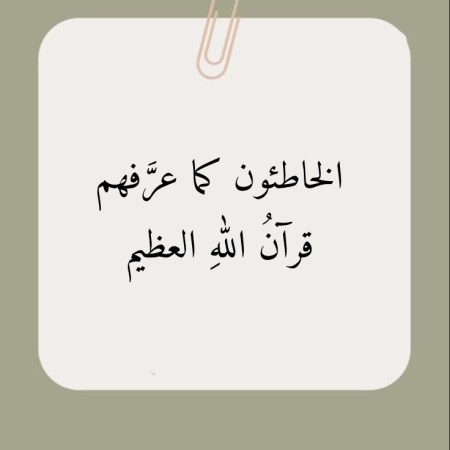 الخاطئون كما عرَّفهم
قرآنُ اللهِ العظيم